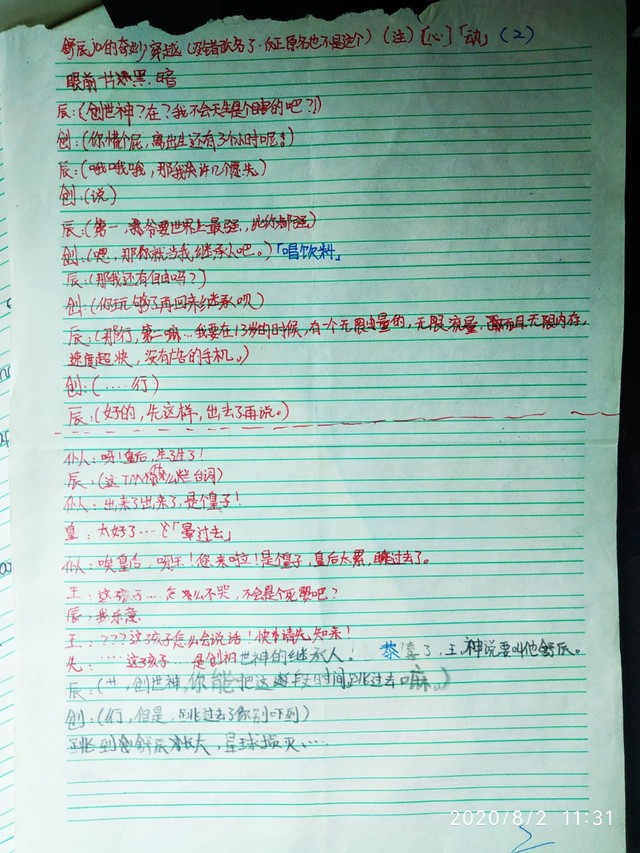 舒辰jo的奇妙穿越(没错改名了·反正原名也不是这个)(注)【心】「动」(2)
眼前一片漆黑.暗
辰:(创世神?在?我不会天生是个的吧?!)
创:(你懂个屁,离出生还有3个小时呢!)
辰:(哦哦哦,那我来许几个愿先)
创:(说)
辰:(第一,我要世界上最强,比你都强)
创:(嗯,那你就当我继承人吧。)「唱饮料」
辰:(那我还有自由吗?)
创:(你玩够了再回来继承呗)
辰:(那行,第二嘛…我要在13岁的时候,有个无限电量的,无限流量,而且无限内存,
速度超快,没有广告的手机。)
创:(……行)
辰:(好的,先这样,出去了再说。)
仆人:呀!皇后,生了生了!
辰:(这TM什么烂台词)
仆人:出来了出来了,是个皇子!
皇:太好了…「晕过去」
仆人:唉皇后,呀王!您来啦!是个皇子,皇后太累,睡过去了。
王:这孩子…怎么不哭,不会是个死婴吧?
辰:我乐意
王:???这孩子怎么会说话!快请先知来!
先:……这孩子…是创世神的继承人。恭喜了,王,神说要叫他舒辰。
辰:(艹,创世神,你能把这段时间跳过去嘛。)
创:(行,但是,跳过去了你别吓到)
跳到舒辰长大,星球损灭……
2020/8/2 11:31